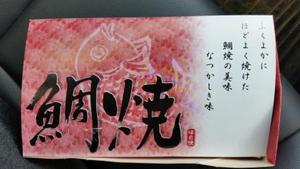 ふくよかに
ほどよく焼けた
鯛焼の美味
なつかしき味
鯛焼